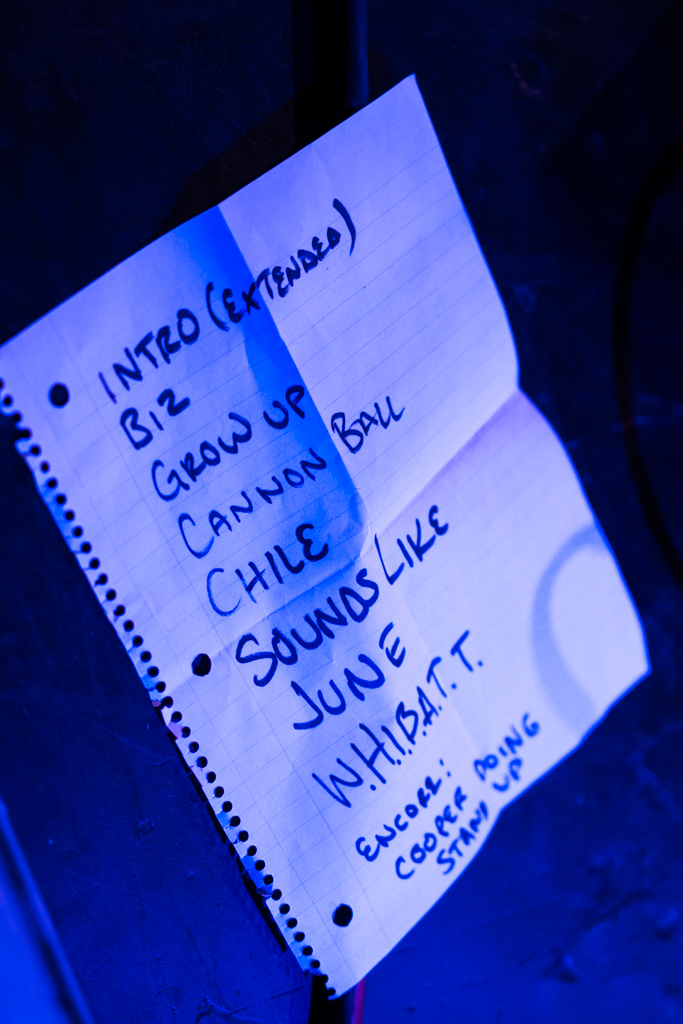 INTRO (EXTENDED)
BIZ
GROW UP
CANNON BALL
CHILE
SOUNDS LIKE
JUNE
W.H.I.B.A.T.T.
ENCORE:
COOPER DOING
STAND UP